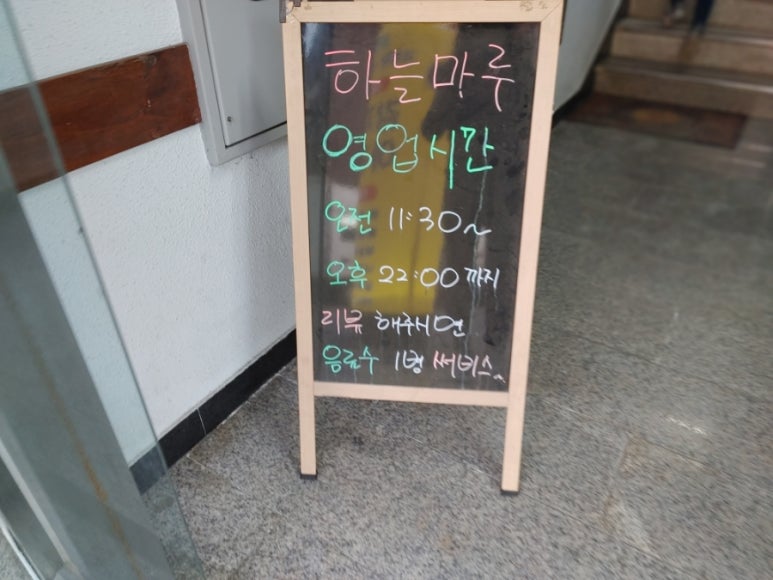 하늘마루
영업시간
오전 11:30~
오후 22:00 까지
리뷰 해주시면
음료수 1병 써비스